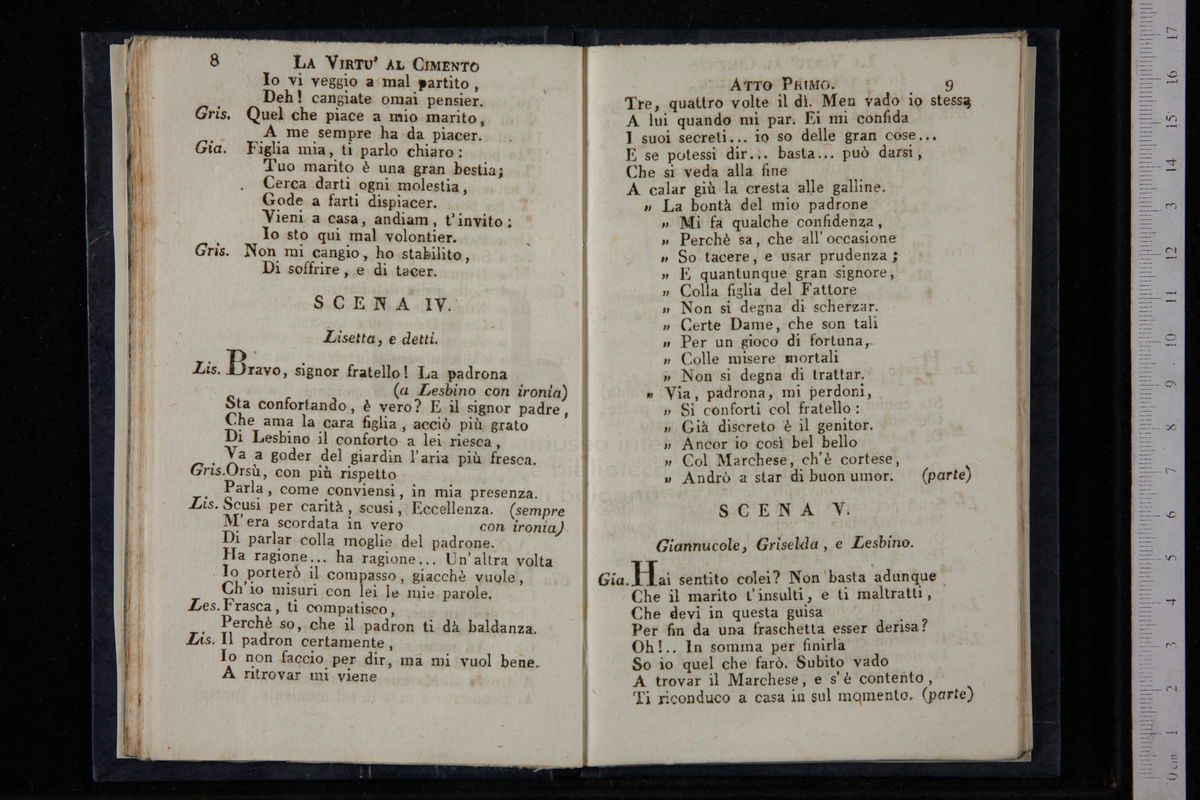 8 LA VIRTU' AL CIMENTO
Io vi veggio a mal partito,
Deh! cangiate omai pensier.
Gris. Quel che piace a mio marito,
A me sempre ha da piacer.
Gia. Figlia mia, ti parlo chiaro:
Tuo marito è una gran bestia;
Cerca darti ogni molestia,
Gode a farti dispiacer.
Vieni a casa, andiam, t'invito:
Io sto qui mal volontier.
Gris. Non mi cangio, ho stabilito,
Di soffrire, e di tacer.
SCENA IV.
Lisetta, e detti.
Lis. Bravo, signor fratello! La padrona
(a Lesbino con ironia)
Sta confortando, è vero? E il signor padre,
Che ama la cara figlia, acciò più grato
Di Lesbino il conforto a lei riesca,
Va a goder del giardin l'aria più fresca.
Gris. Orsù, con più rispetto
Parla, come conviensi, in mia presenza.
Lis. Scusi per carità, scusi, Eccellenza. (sempre
M'era scordata in vero con ironia)
Di parlar colla moglie del padrone.
Ha ragione... ha ragione... Un'altra volta
Io porterò il compasso, giacchè vuole,
Ch'io misuri con lei le mie parole.
Les. Frasca, ti compatisco,
Perchè so, che il padron ti dà baldanza.
Lis. Il padron certamente,
Io non faccio per dir, ma mi vuol bene.
A ritrovar mi viene
ATTO PRIMO. 9
Tre, quattro volte il dì. Men vado io stessa
A lui quando mi par. Ei mi confida
I suoi secreti... io so delle gran cose...
E se potessi dir... basta... può darsi,
Che si veda alla fine
A calar giù la cresta alle galline.
" La bontà del mio padrone
" Mi fa qualche confidenza,
" Perchè sa, che all'occasione
" So tacere, e usar prudenza;
" E quantunque gran signore,
" Colla figlia del Fattore
" Non si degna di scherzar.
" Certe Dame, che son tali
" Per un gioco di fortuna,
" Colle misere mortali
" Non si degna di trattar.
" Via, padrona, mi perdoni,
" Si conforti col fratello:
" Già discreto è il genitor.
" Ancor io così bel bello
" Col Marchese, ch'è cortese,
" Andrò a star di buon umor. (parte)
SCENA V.
Giannucole, Griselda, e Lesbino.
Gia. Hai sentito colei? Non basta adunque
Che il marito t'insulti, e ti maltratti,
Che devi in questa guisa
Per fin da una fraschetta esser derisa?
Oh!.. In somma per finirla
So io quel che farò. Subito vado
A trovar il Marchese, e s'è contento,
Ti riconduco a casa in sul momento. (parte)
0 cm 1 2 3 4 5 6 7 8 9 10 11 12 13 14 15 16 17